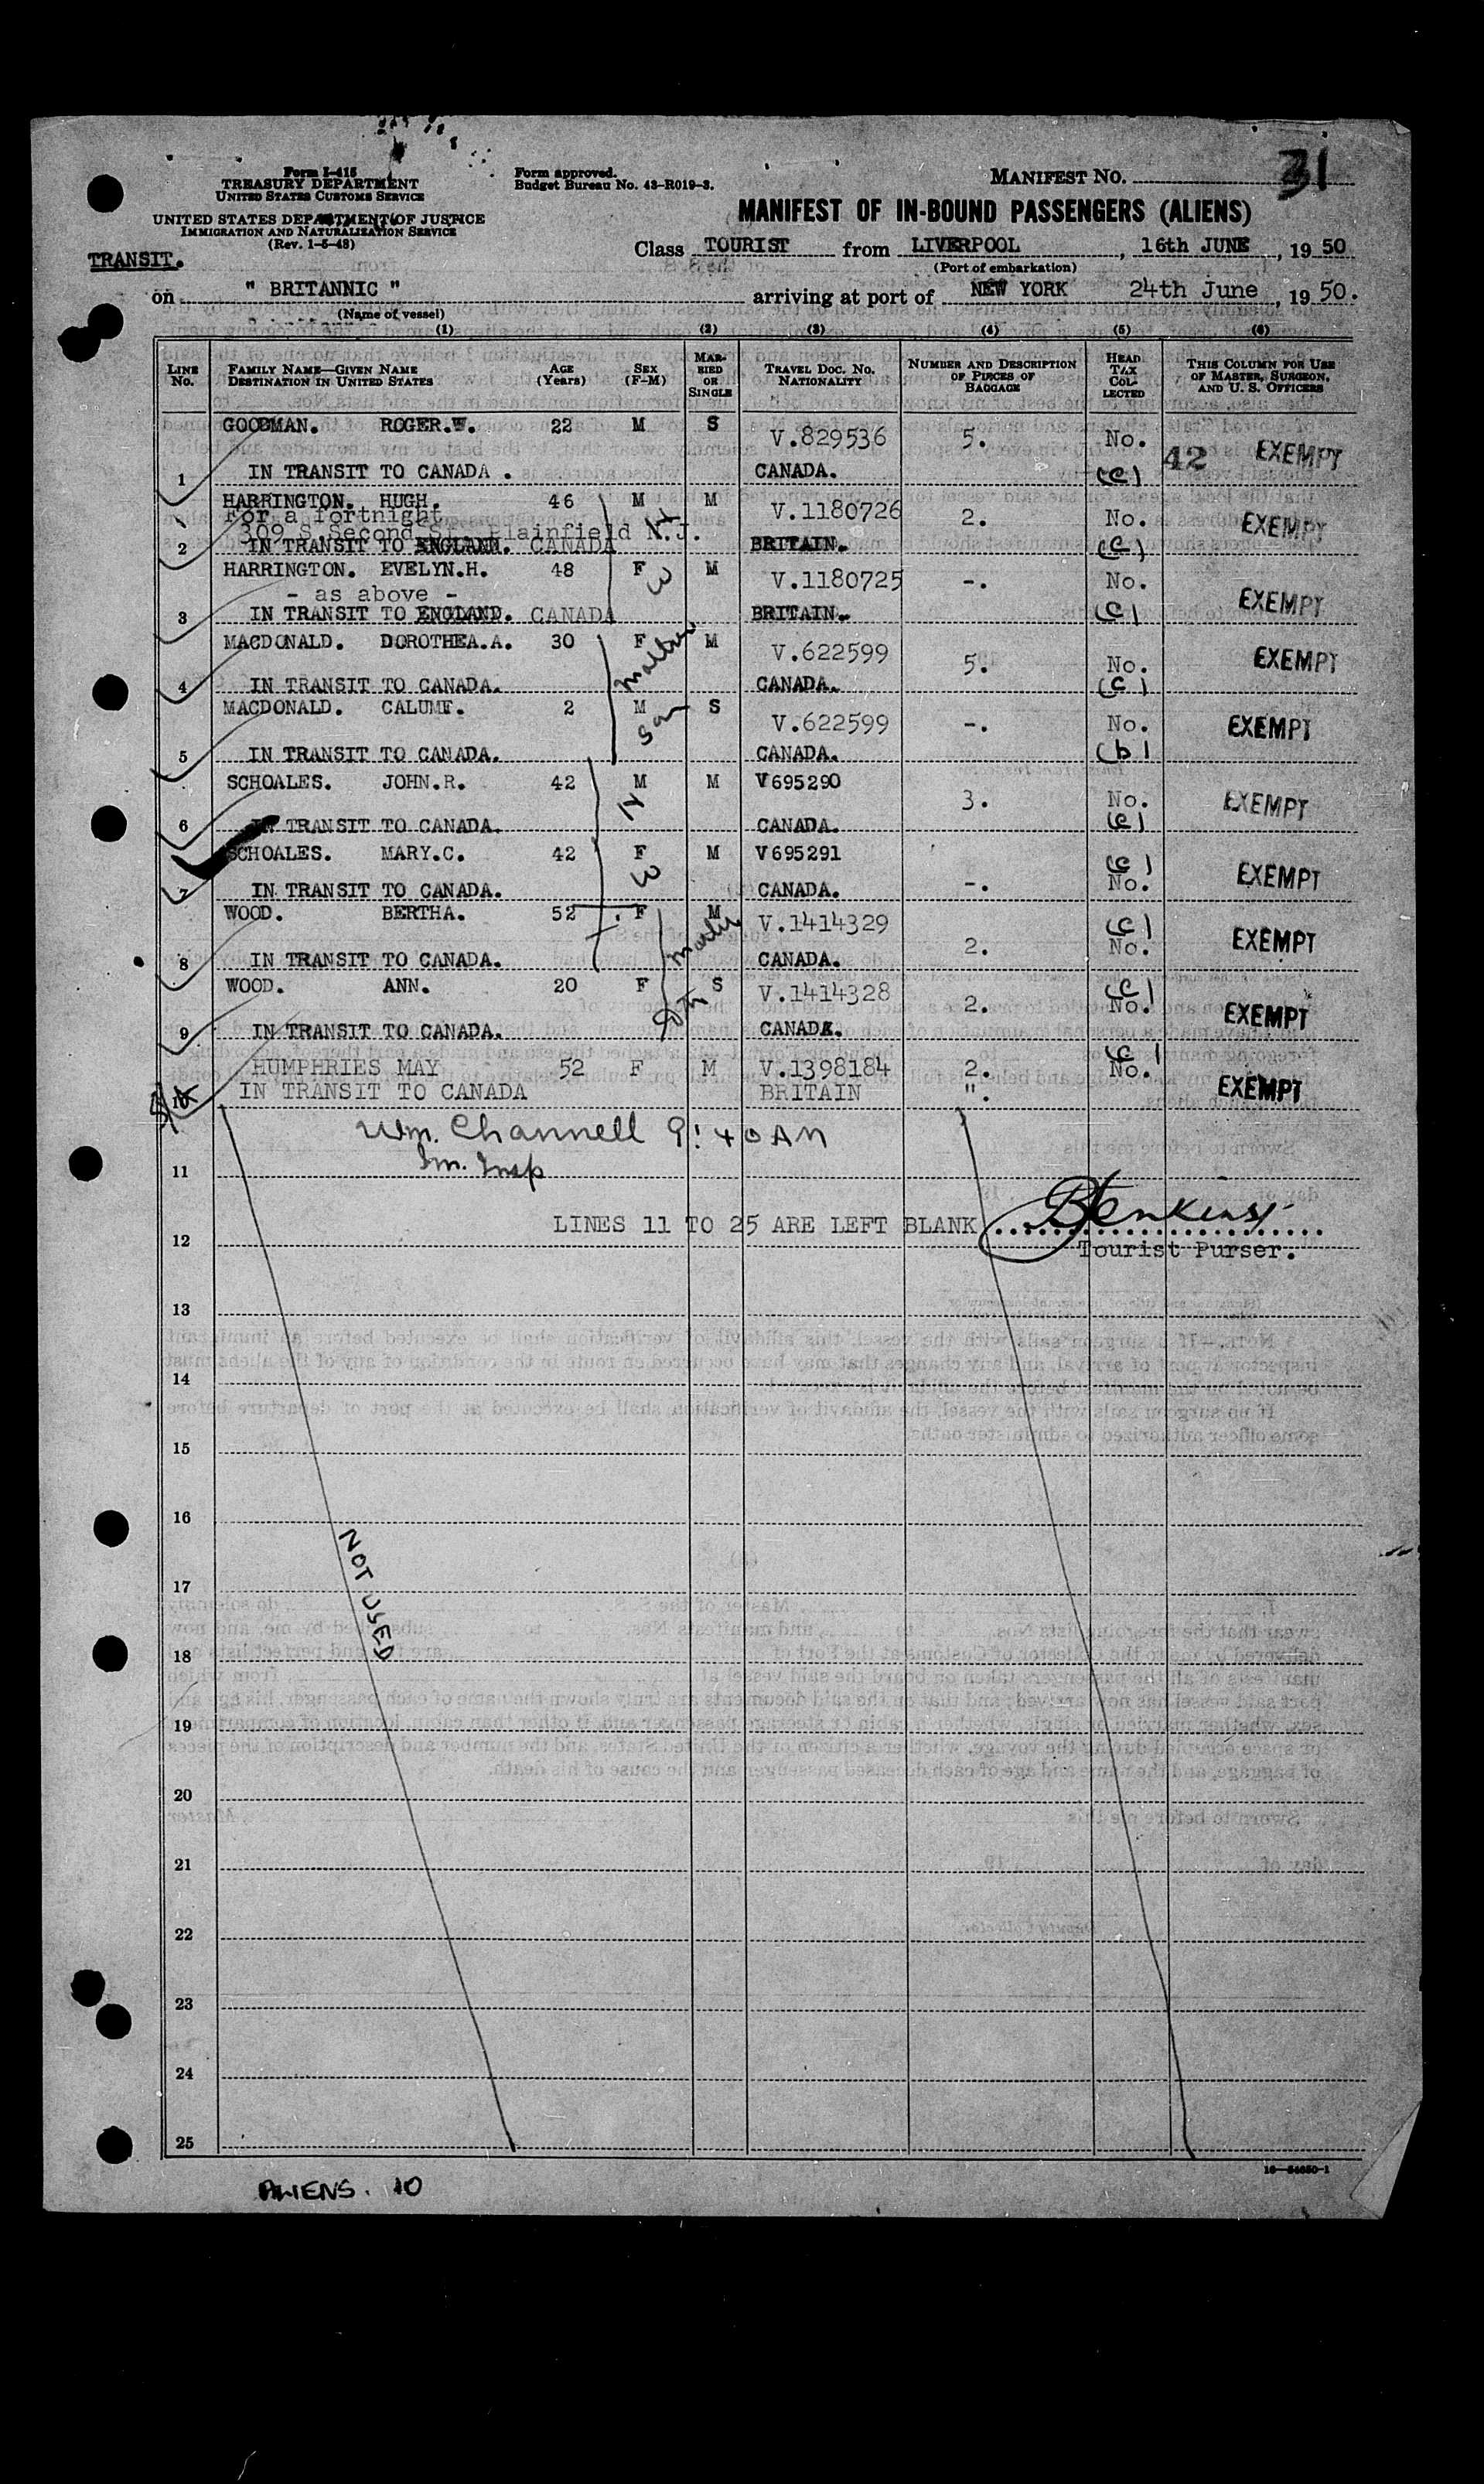 31
Form I-415
TREASURY DEPARTMENT
UNITED STATES CUSTOMS SERVICE
UNITED STATES DEPARTMENT OF JUSTICE
IMMIGRATION AND NATURALIZATION SERVICE
(Rev. 1-5-48)
Form approved.
Budget Bureau No. 43-R019-3.
MANIFEST NO.
MANIFEST OF IN-BOUND PASSENGERS (ALIENS)
TRANSIT.
Class TOURIST from LIVERPOOL, 16th JUNE, 1950
(Port of embarkation)
on " BRITANNIC " arriving at port of NEW YORK 24th June, 1950.
(Name of vessel)
(1) (2) (3) (4) (5) (6)
LINE No. FAMILY NAME—GIVEN NAME DESTINATION IN UNITED STATES AGE (Years) SEX (F-M) MARRIED OR SINGLE TRAVEL DOC. NO. NATIONALITY NUMBER AND DESCRIPTION OF PIECES OF BAGGAGE HEAD TAX COLLECTED THIS COLUMN FOR USE OF MASTER, SURGEON, AND U. S. OFFICERS
GOODMAN. ROGER.W. 22 M S V.829536 5. No. 42 EXEMPT
1 IN TRANSIT TO CANADA . CANADA. (c)
HARRINGTON. HUGH. 46 M M V.1180726 2. No. EXEMPT
For a fortnight
309 S.Second St. Plainfield N.J.
2 IN TRANSIT TO ENGLAND. CANADA BRITAIN. (c)
HARRINGTON. EVELYN.H. 48 F W M V.1180725 -. No. EXEMPT
- as above -
3 IN TRANSIT TO ENGLAND. CANADA BRITAIN. (c)
MACDONALD. DOROTHEA.A. 30 F mother M V.622599 5. No. EXEMPT
4 IN TRANSIT TO CANADA. CANADA. (c)
MACDONALD. CALUMF. 2 M son S V.622599 -. No. EXEMPT
5 IN TRANSIT TO CANADA. CANADA. (b)
SCHOALES. JOHN.R. 42 M H M V695290 3. No. EXEMPT
6 IN TRANSIT TO CANADA. CANADA. (c)
SCHOALES. MARY.C. 42 F W M V695291 (c) EXEMPT
7 IN TRANSIT TO CANADA. CANADA. -. No.
WOOD. BERTHA. 52 F M V.1414329 (c) EXEMPT
8 IN TRANSIT TO CANADA. CANADA. 2. No.
WOOD. ANN. 20 F S V.1414328 2. (c) No. EXEMPT
9 IN TRANSIT TO CANADA. CANADA.
HUMPHRIES MAY 52 F M V.1398184 2. (c) No. EXEMPT
10 IN TRANSIT TO CANADA BRITAIN ".
Wm. Channell 9:40 AM
Im. Insp
11
LINES 11 TO 25 ARE LEFT BLANK
12 Tourist Purser.
13
14
15
16
NOT USED
17
18
19
20
21
22
23
24
25
16—54650-1
ALIENS. 10